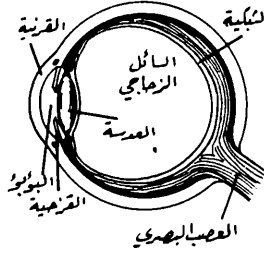 القرنية
الشبكية
السائل
الزجاجي
العدسة
البؤبؤ
القزحية
العصب البصري